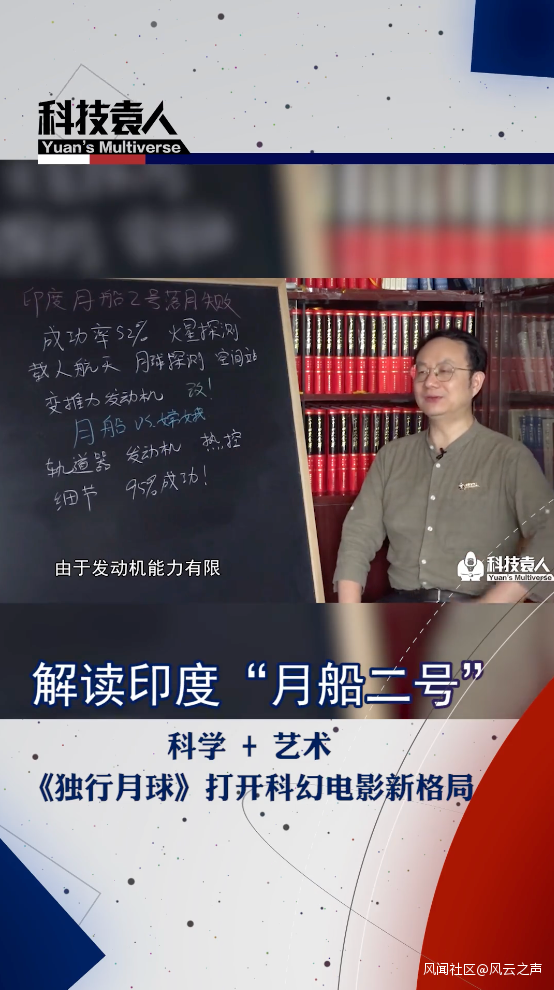 科技袁人
Yuan's Multiverse
印度月船2号落月失败
成功率52% 火星探测
载人航天 月球探测 空间站
变推力发动机 改!
月船 VS.嫦娥
轨道器 发动机 热控
细节 95%成功!
由于发动机能力有限
科技袁人
Yuan's Multiverse
解读印度“月船二号”
科学 + 艺术
《独行月球》打开科幻电影新格局
风闻社区@风云之声